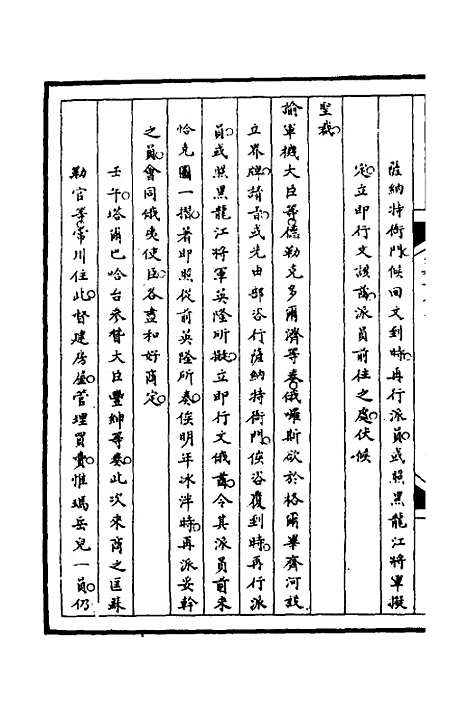 薩納特衙門候回文到時再行派員或照黑龍江將軍擬
定立即行文該酋派員前往之處伏候
聖裁
諭軍機大臣等德勒克多爾濟等奏俄囉斯欲於格爾畢齊河設
立界牌請旨或先由部咨行薩納特衙門俟咨覆到時再行派
員或照黑龍江將軍英隆所擬立即行文俄酋令其派員前來
恰克圖一摺著即照從前英隆所奏俟明年冰泮時再派妥幹
之員會同俄夷使臣各盡和好商定
壬午塔爾巴哈台參贊大臣豐紳等奏此次來商之匡蘇
勒官等常川住此督建房屋管理買賣惟瑪安兒一員仍